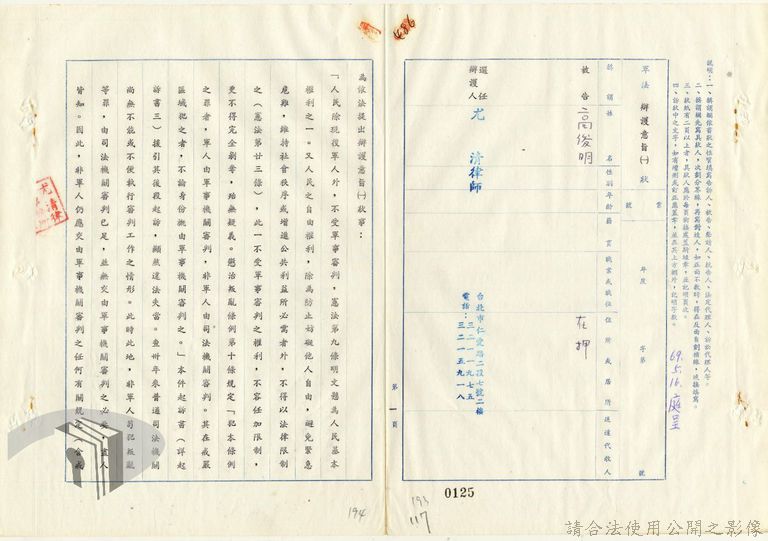 說明：一、稱謂欄依當狀之性質填寫告訴人、被告、參加人、抗告人、法定代理人、訴訟代理人等。
二、稱謂欄先寫具狀人，次劃分界線，再寫對造人，如正面不敷時，得在反面自劃橫線，或接場寫。
三、狀紙有二頁以上者，具狀人應於每頁銜接處蓋騎縫章，並記明頁次。
四、訴狀中之文字，如有增刪或訂正應蓋章，並在其上方欄外，記明字數。
69.5.16.庭呈
軍法 辯護意旨㈠ 狀
案號
年度 字第 號
稱謂 姓名 性別 年齡 籍貫 職業或職位 住所或居所 送達代收人
被告 高俊明 在押
選任辯護人 尤清律師
台北市仁愛路二段七號二樓
電話：三二一一九七五
三二一五九一八
0125
193
117
第一頁
486
為依法提出辯護意旨㈠狀事：
「人民除現役軍人外，不受軍事審判，憲法第九條明文懸為人民基本
權利之一。又人民之自由權利，除為防止妨礙他人自由，避免緊急
危難，維持社會秩序或增進公共利益所必需者外，不得以法律限制
之（憲法第廿三條），此一不受軍事審判之權利，不容任加限制，
更不得完全剝奪，殆無疑義。懲治叛亂條例第十條規定「犯本條例
之罪者，軍人由軍事機關審判，非軍人由司法機關審判。其在戒嚴
區域犯之者，不論身份概由軍事機關審判之。」本件起訴書（詳起
訴書三）援引其後段起訴，顯然違法失當。查卅年來普通司法機關
尚無不能或不便執行審判工作之情形。此時此地，非軍人另犯叛亂
等罪，由司法機關審判已足，並無交由軍事機關審判之必要，盡人
皆知。因此，非軍人仍應交由軍事機關審判之任何有關規定（含戒
194
尤清律
請合法使用公開之影像